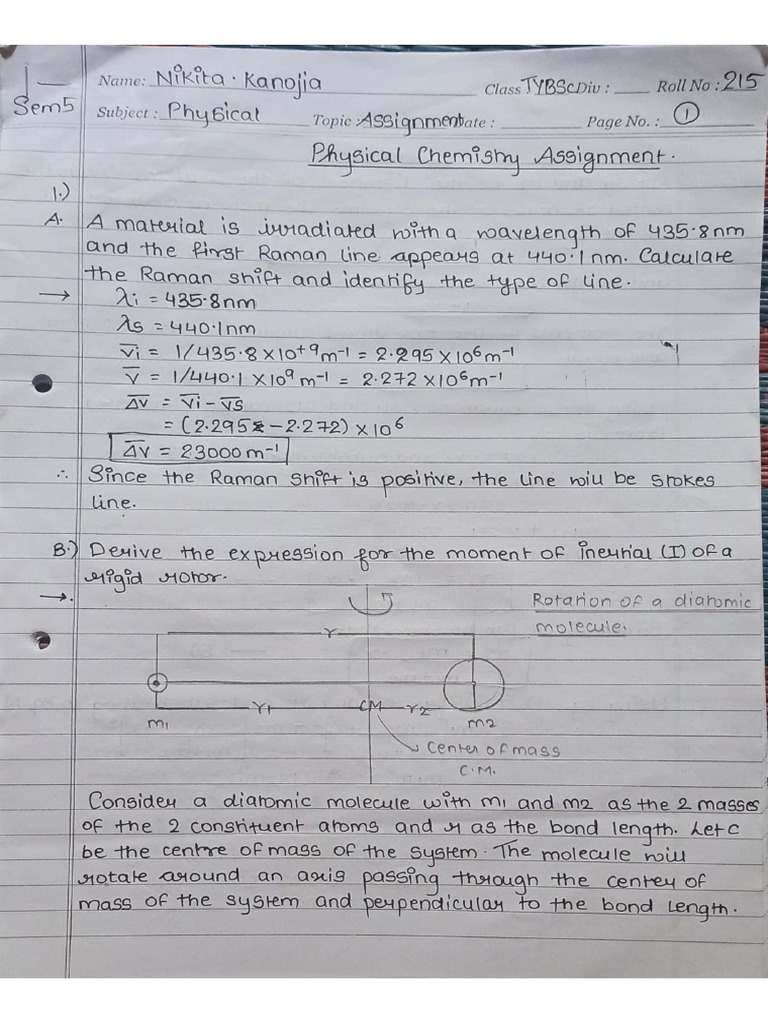 Name: Nikita . Kanojia Class TYBSc Div : ____ Roll No : 215
Sem 5 Subject : Physical Topic : Assignment Date : ____ Page No. : 1
Physical Chemistry Assignment .
1.)
A. A material is irradiated with a wavelength of 435.8nm
and the first Raman line appears at 440.1nm. Calculate
the Raman shift and identify the type of line.
→ λi = 435.8nm
λs = 440.1nm
v̅i = 1/435.8 x 10⁺⁹ m⁻¹ = 2.295 x 10⁶ m⁻¹
v̅ = 1/440.1 x 10⁹ m⁻¹ = 2.272 x 10⁶ m⁻¹
Δ̅v̅ = v̅i - v̅s
= (2.295 - 2.272) x 10⁶
Δ̅v̅ = 23000 m⁻¹
∴ Since the Raman shift is positive, the line will be stokes
line.
B.) Derive the expression for the moment of inertial (I) of a
rigid rotor.
→. Rotation of a diatomic
molecule.
r
r1 CM r2
m1 m2
Center of mass
C.M.
Consider a diatomic molecule with m1 and m2 as the 2 masses
of the 2 constituent atoms and r as the bond length. Let C
be the centre of mass of the system. The molecule will
rotate around an axis passing through the center of
mass of the system and perpendicular to the bond length.